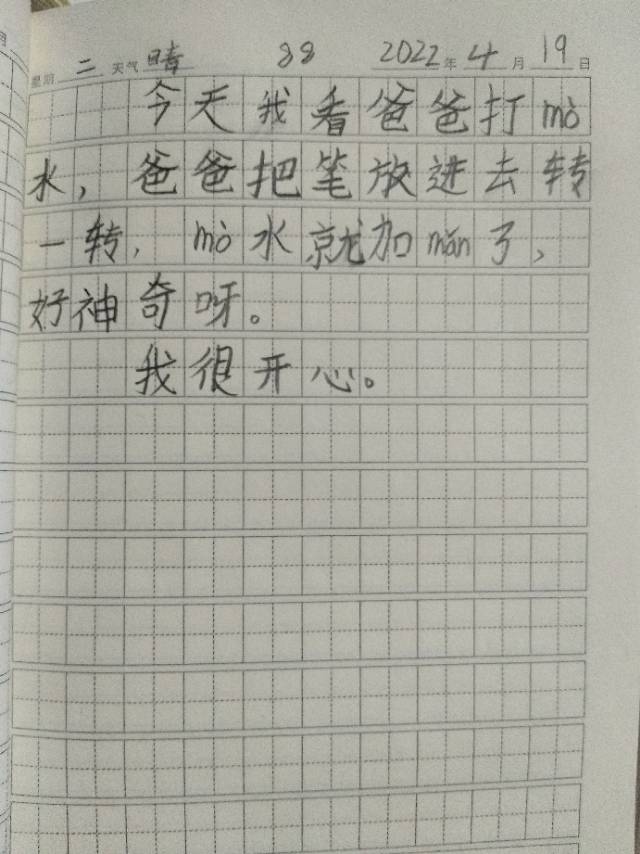 星期 二 天气 晴 88 2022 年 4 月 19 日
今天我看爸爸打mò
水，爸爸把笔放进去转
一转，mò水就加mǎn了，
好神奇呀。
我很开心。